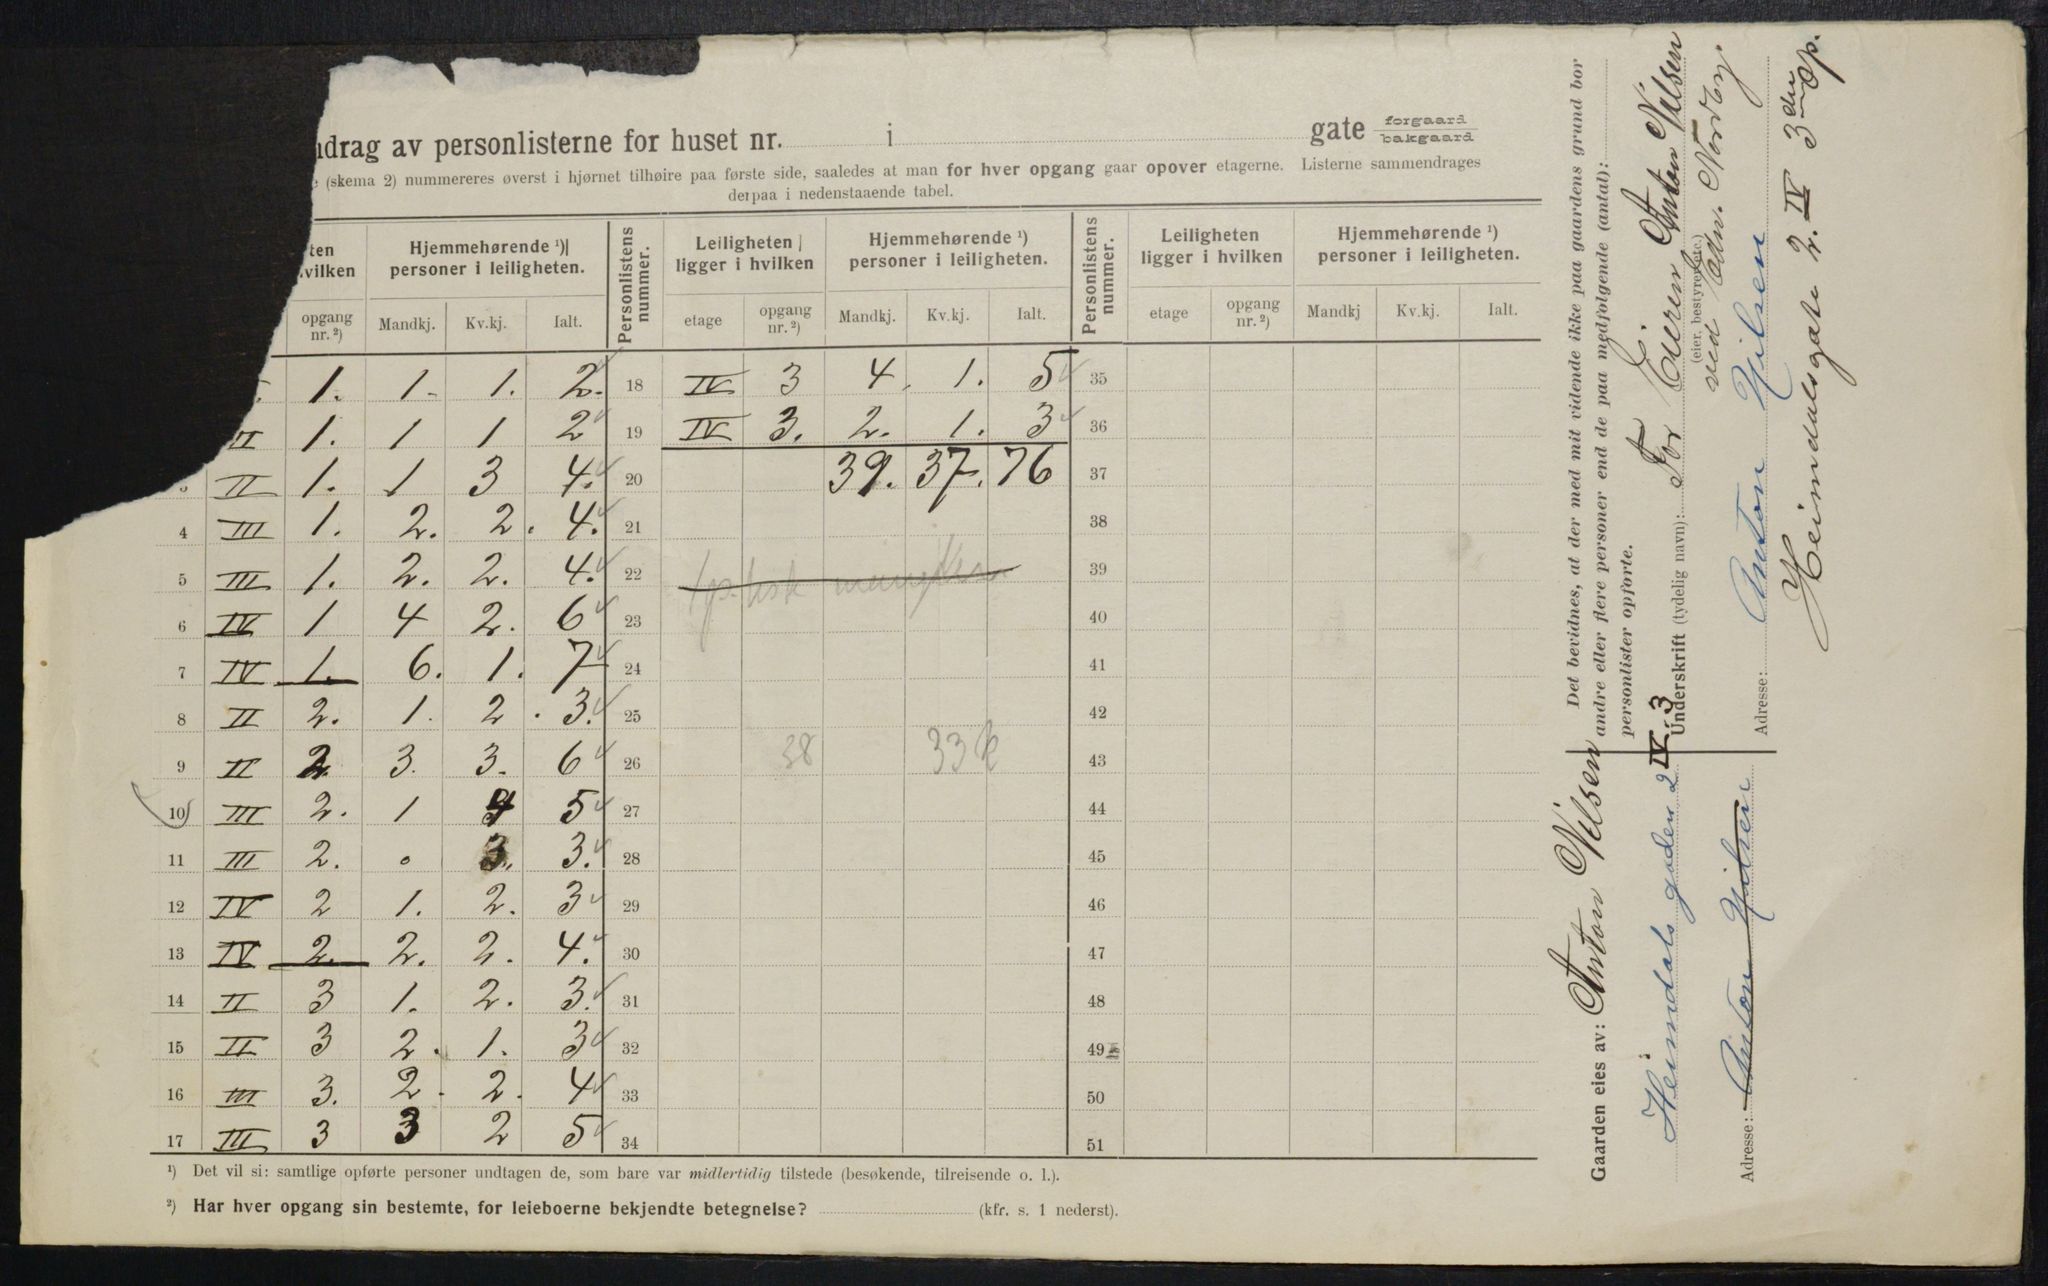 ndrag av personlisterne for huset nr. i gate forgaard bakgaard
(skema 2) nummereres øverst i hjørnet tilhøire paa første side, saaledes at man for hver opgang gaar opover etagerne. Listerne sammendrages
derpaa i nedenstaaende tabel.
ten hvilken Hjemmehørende ¹) personer i leiligheten. Personlistens nummer. Leiligheten ligger i hvilken Hjemmehørende ¹) personer i leiligheten. Personlistens nummer. Leiligheten ligger i hvilken Hjemmehørende ¹) personer i leiligheten.
opgang nr. ²) Mandkj. Kv.kj. Ialt. etage opgang nr. ²) Mandkj. Kv.kj. Ialt. etage opgang nr. ²) Mandkj Kv.kj. Ialt.
1. 1. 1. 2. 18 IV 3 4. 1. 5 35
II 1. 1 1 2 19 IV 3. 2. 1. 3 36
3 II 1. 1 3 4. 20 39. 37. 76 37
4 III 1. 2. 2. 4. 21 38
5 III 1. 2. 2. 4. 22 39
6 IV 1 4 2. 6 23 40
7 IV 1. 6. 1. 7 24 41
8 II 2. 1. 2. 3. 25 42
9 II 2. 3. 3. 6 26 38 33 k 43
10 III 2. 1 4 5 27 44
11 III 2. 0 3. 3. 28 45
12 IV 2 1. 2. 3 29 46
13 IV 2. 2. 2. 4. 30 47
14 II 3 1. 2. 3. 31 48
15 II 3 2. 1. 3 32 49
16 III 3. 2. 2. 4 33 50
17 III 3 3 2 5 34 51
¹) Det vil si: samtlige opførte personer undtagen de, som bare var midlertidig tilstede (besøkende, tilreisende o. l.).
²) Har hver opgang sin bestemte, for leieboerne bekjendte betegnelse? (kfr. s. 1 nederst).
Det bevidnes, at der med mit vidende ikke paa gaardens grund bor
andre eller flere personer end de paa medfølgende (antal):
personlister opførte.
Underskrift (tydelig navn): For Eieren Anton Nilsen
(eier, bestyrer etc.)
ved Edv. Nordby.
Adresse: Anton Nilsen
Heimdalsgate 2. IV 3die Op.
Gaarden eies av: Anton Nilsen
Heimdals gaden 2 IV. 3
Adresse: Anton Nilsen